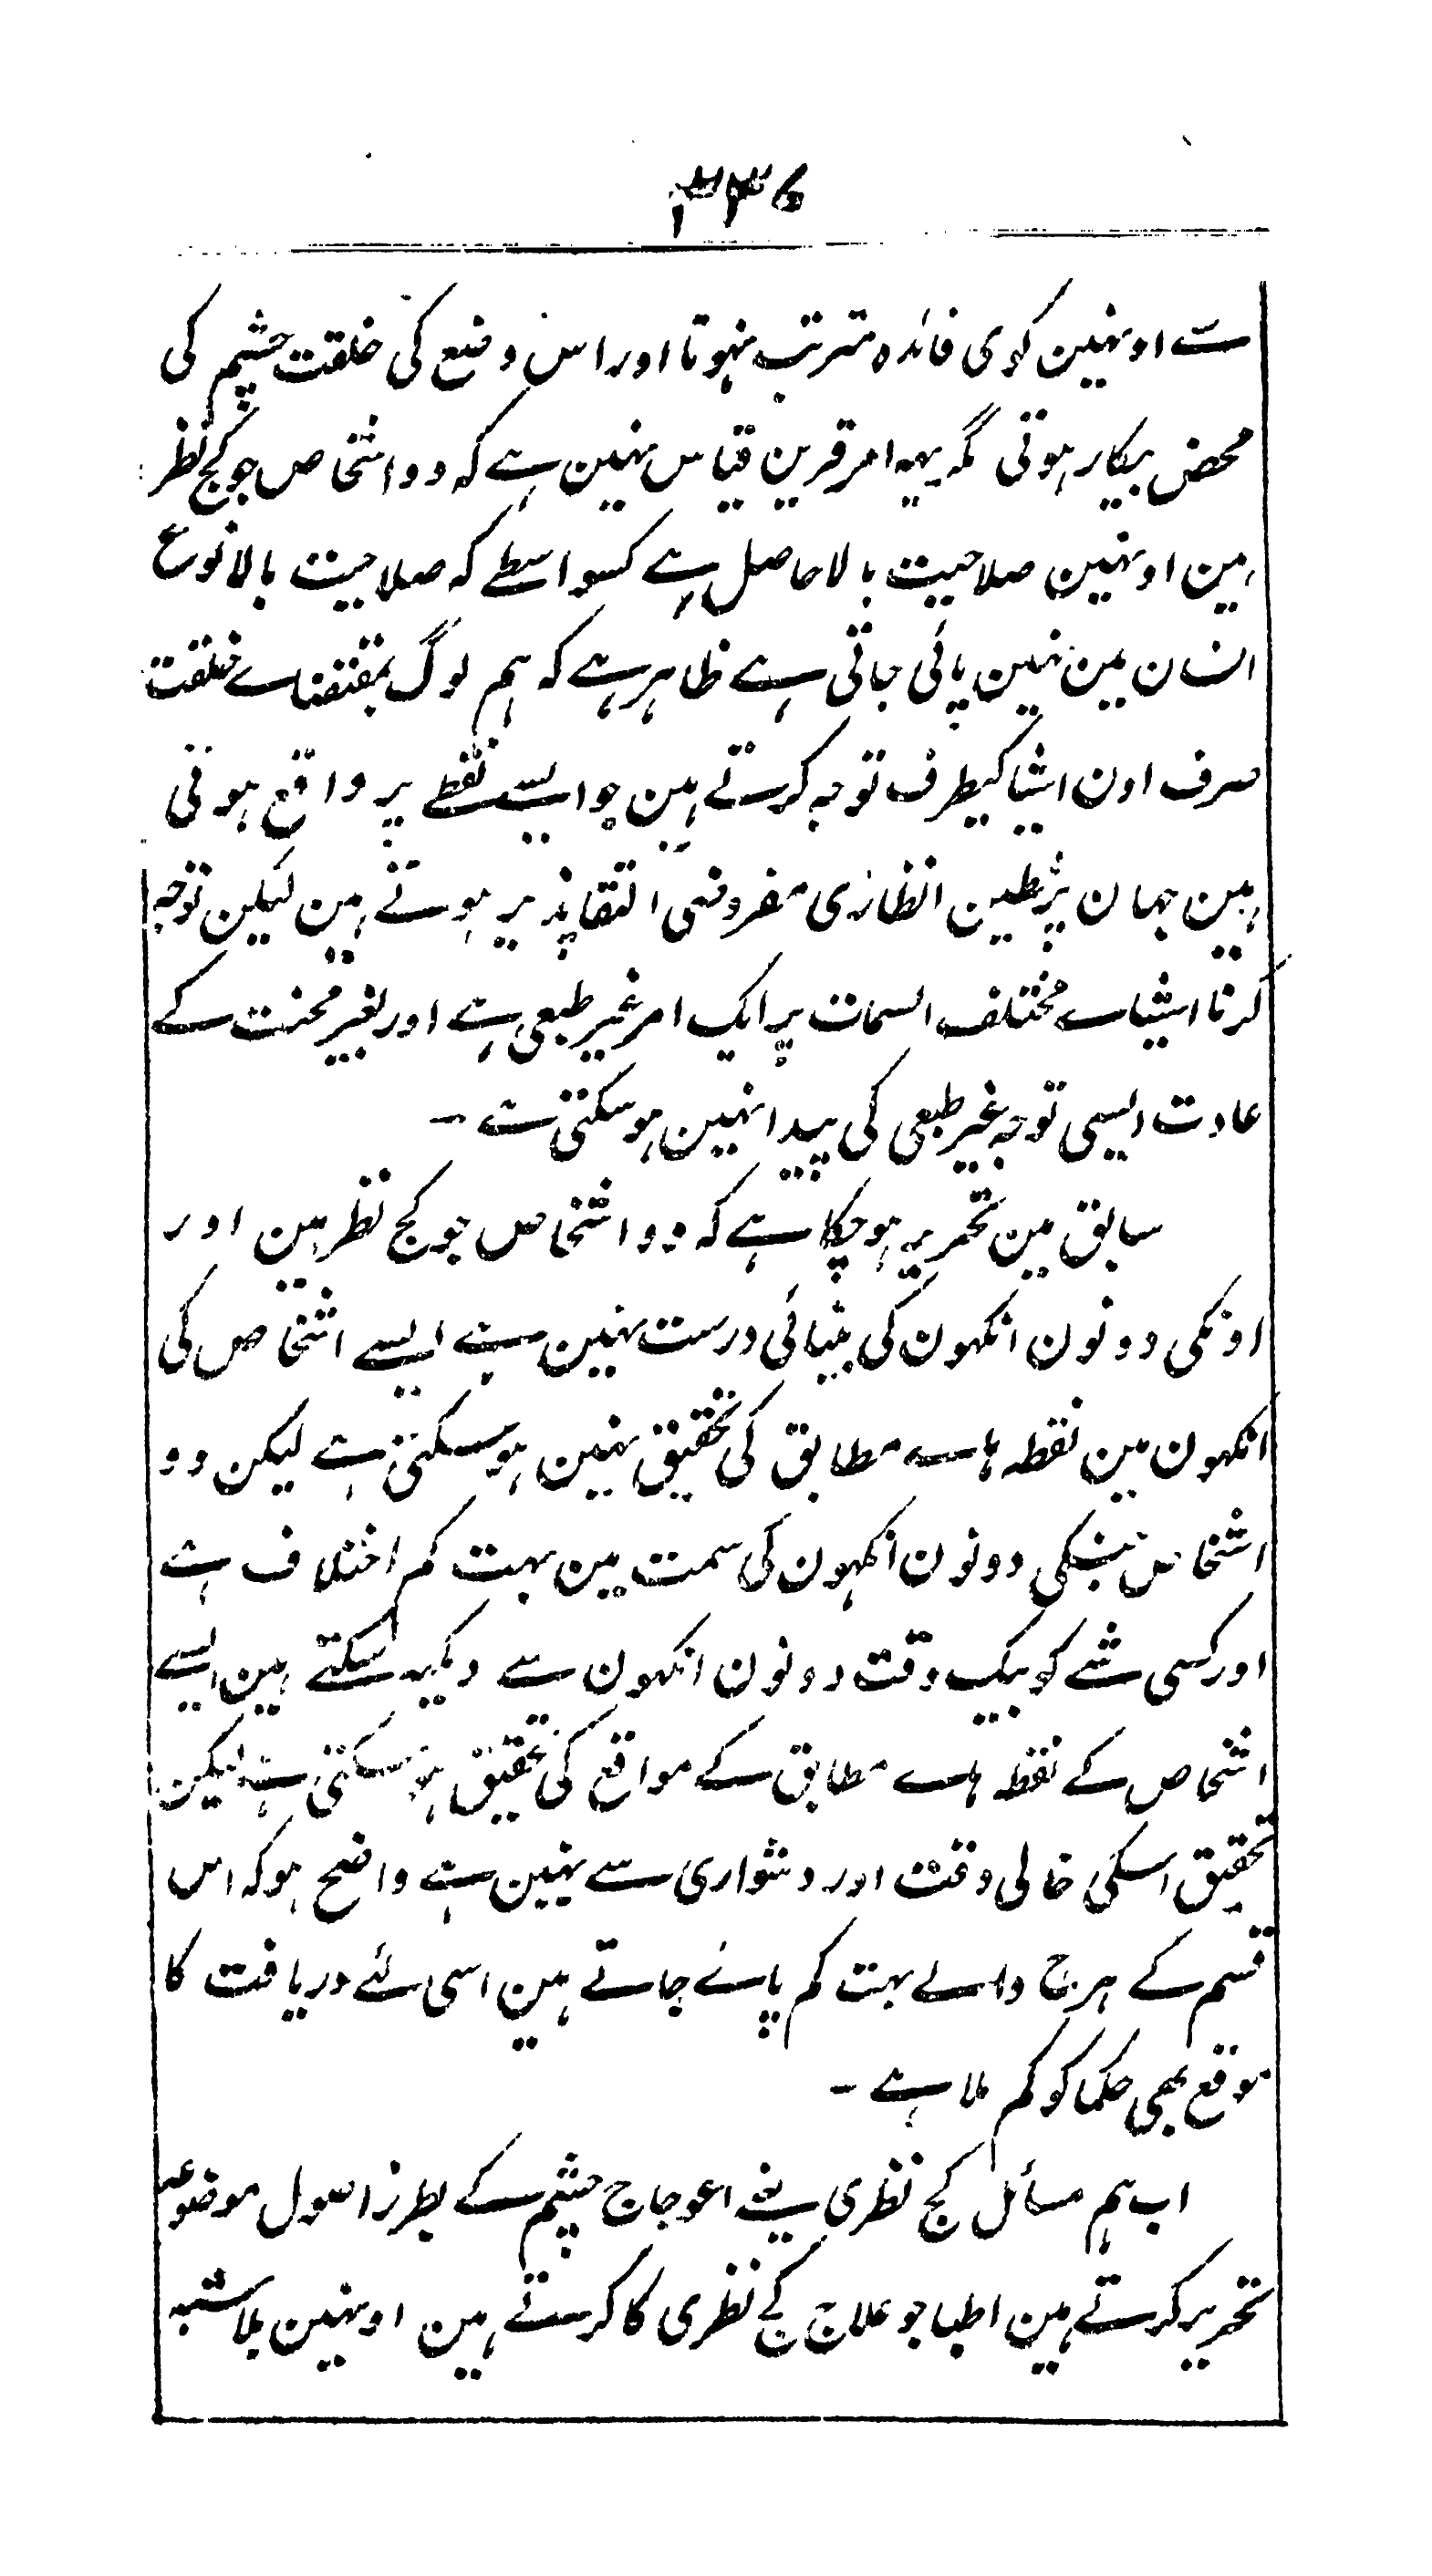 ۳۳۶
سے اونہین کوی فائدہ مترتب نہوتا اور اس وضع کی خلقت چشم کی
محض بیکار ہوتی مگر یہہ امر قرین قیاس نہین ہے کہ وو اشخاص جو کج نظر
ہین اونہین صلاحیت بالا حاصل ہے کسواسطے کہ صلاحیت بالا نوع
انسان مین نہین پائی جاتی ہے ظاہر ہے کہ ہم لوگ بمقتضاے خلقت
صرف اون اشیا کیطرف توجہ کرتے ہین جو ایسے نقطے پر واقع ہوتی
ہین جہان پر خطین انظاری مفروضی التقا پذیر ہوتے ہین لیکن توجہ
کرنا اشیاے مختلف السمات پر ایک امر غیر طبعی ہے اور بغیر محنت کے
عادت ایسی توجہ غیر طبعی کی پیدا نہین ہو سکتی ہے ۔
سابق مین تحریر ہو چکا ہے کہ وو اشخاص جو کج نظر ہین اور
اونکی دونون انکھون کی بینائی درست نہین ہے ایسے اشخاص کی
انکھون مین نقطہ ہاے مطابق کی تحقیق نہین ہو سکتی ہے لیکن وو
اشخاص جنکی دونون انکھون کی سمت مین بہت کم اختلاف ہے
اور کسی شے کو بیک وقت دونون انکھون سے دیکھ سکتے ہین ایسے
اشخاص کے نقطہ ہاے مطابق کے مواقع کی تحقیق ہو سکتی ہے لیکن
تحقیق اسکی خالی دقت اور دشواری سے نہین ہے واضح ہو کہ اس
قسم کے ہرج والے بہت کم پاے جاتے ہین اسی لئے دریافت کا
موقع بھی حکما کو کم ملا ہے ۔
اب ہم مسائل کج نظری یعنے اعوجاج چشم کے بطرز اصول موضوعہ
تحریر کرتے ہین اطبا جو علاج کج نظری کا کرتے ہین اونہین بلا شبہ